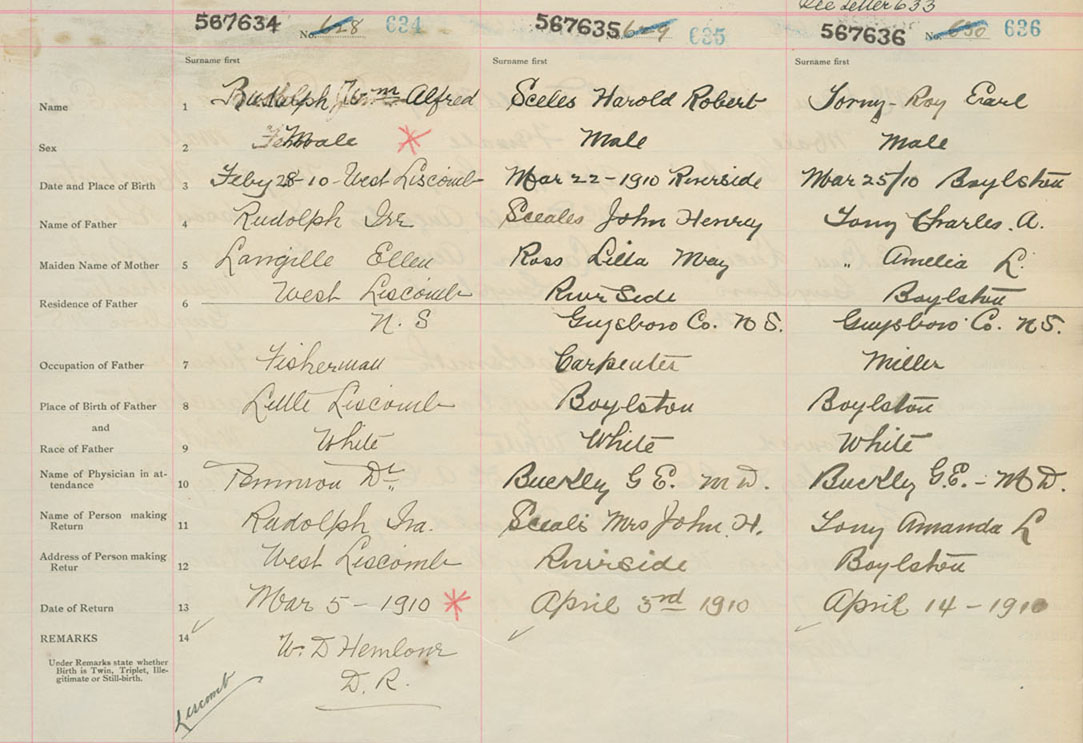 See Letter 633
567634 No. 628 634 567635 629 635 567636 No. 630 636
Surname first Surname first Surname first
Name 1 Rudolph, Wm Alfred Sceles Harold Robert Torny-Roy Earl
Sex 2 Male Male Male
Date and Place of Birth 3 Feby 28-10-West Liscomb Mar 22-1910 Riverside Mar 25/10 Boylston
Name of Father 4 Rudolph Ira Sceales John Henry Tony Charles. A.
Maiden Name of Mother 5 Langille Ellen Ross Lilla May " Amelia L.
Residence of Father 6 West Liscomb River Side Boylston
N. S Guysboro Co. N S. Guysboro Co. N S.
Occupation of Father 7 Fisherman Carpenter Miller
Place of Birth of Father 8 Little Liscomb Boylston Boylston
and
Race of Father 9 White White White
Name of Physician in at-
tendance 10 Dr Buckley G E. M D. Buckley G.E.- M D.
Name of Person making
Return 11 Rudolph Ira. Sceals Mrs John H. Tony Amanda L
Address of Person making
Retur 12 West Liscomb Riverside Boylston
Date of Return 13 Mar 5-1910 April 3rd 1910 April 14-1910
REMARKS 14 W. D Hemlow
Under Remarks state whether
Birth is Twin, Triplet, Ille-
gitimate or Still-birth.
D. R.
Liscomb